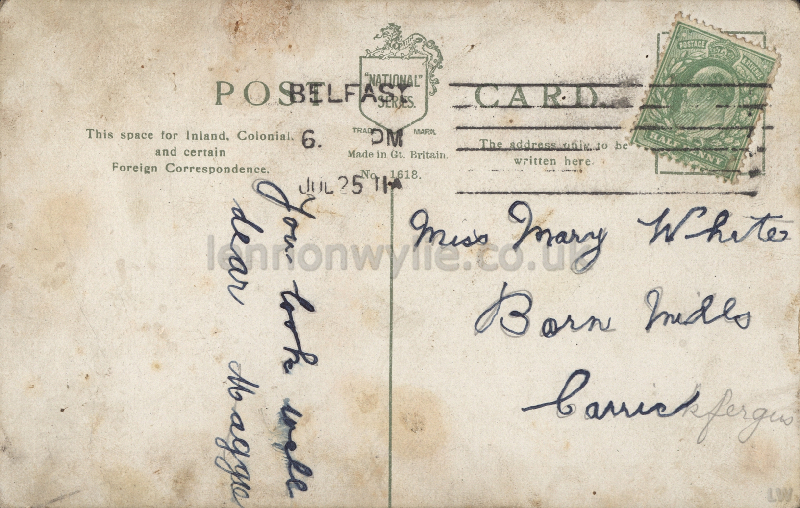 POST CARD
"NATIONAL"
SERIES
TRADE MARK
Made in Gt. Britain.
No. 1618.
This space for Inland, Colonial,
and certain
Foreign Correspondence.
The address only to be
written here.
BELFAST
6. PM
JUL 25 11
POSTAGE
HALFPENNY
Miss Mary White
Born Mills
Carrickfergus
You look well
dear Maggie
lennonwylie.co.uk
LW